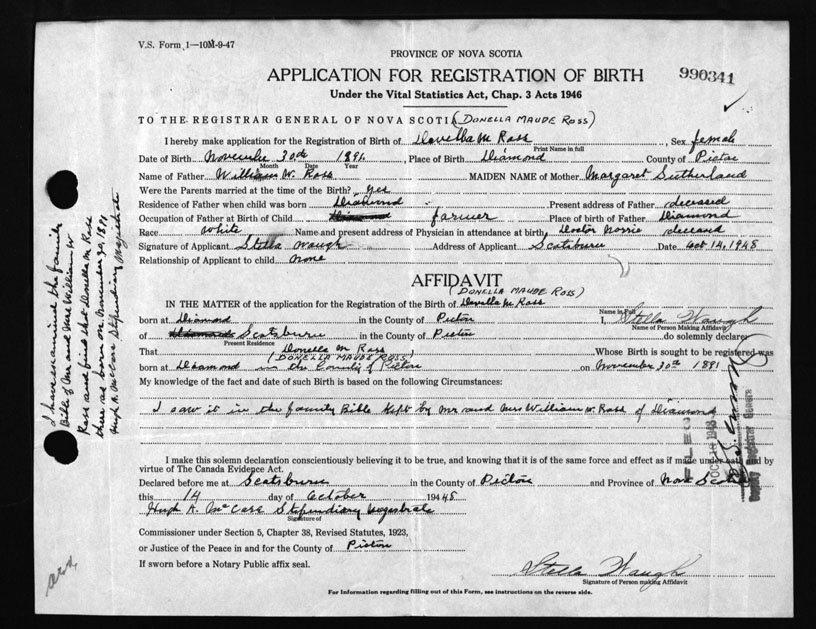 V.S. Form 1—10M-9-47
PROVINCE OF NOVA SCOTIA
APPLICATION FOR REGISTRATION OF BIRTH
990341
Under the Vital Statistics Act, Chap. 3 Acts 1946
TO THE REGISTRAR GENERAL OF NOVA SCOTIA (DONELLA MAUDE ROSS)
I hereby make application for the Registration of Birth of Donella M Ross, Sex female
Print Name in full
Date of Birth November 30th 1891, Place of Birth Diamond County of Pictou
Month Date Year
Name of Father William W. Ross MAIDEN NAME of Mother Margaret Sutherland
Were the Parents married at the time of the Birth? yes
Residence of Father when child was born Diamond Present address of Father deceased
Occupation of Father at Birth of Child Diamond farmer Place of birth of Father Diamond
Race White Name and present address of Physician in attendance at birth Doctor Norrie deceased
Signature of Applicant Stella Waugh Address of Applicant Scotsburn Date Oct 14, 1948
Relationship of Applicant to child None
AFFIDAVIT
(DONELLA MAUDE ROSS)
IN THE MATTER of the application for the Registration of the Birth of Donella M Ross
Name in Full
born at Diamond in the County of Pictou I, Stella Waugh
Name of Person Making Affidavit
of Diamond Scotsburn in the County of Pictou do solemnly declare:
Present Residence
That Donella M Ross Whose Birth is sought to be registered was
(DONELLA MAUDE ROSS)
born at Diamond in the County of Pictou on November 30th 1891
My knowledge of the fact and date of such Birth is based on the following Circumstances:
I saw it in the family Bible kept by Mr and Mrs William W. Ross of Diamond
I make this solemn declaration conscientiously believing it to be true, and knowing that it is of the same force and effect as if made under oath and by
virtue of The Canada Evidence Act.
Declared before me at Scotsburn in the County of Pictou and Province of Nova Scotia
this 14 day of October 1948
Hugh A. McCara Stipendiary Magistrate
Signature of
Commissioner under Section 5, Chapter 38, Revised Statutes, 1923,
or Justice of the Peace in and for the County of Pictou
If sworn before a Notary Public affix seal.
Stella Waugh
Signature of Person making Affidavit
For Information regarding filling out of this Form, see instructions on the reverse side.
I have examined the family
Bible of Mr and Mrs William W
Ross and find that Donella M. Ross
there as born on November 30, 1891
Hugh A. McCara Stipendiary Magistrate
FILED
OCT 1948
Deputy Registrar General